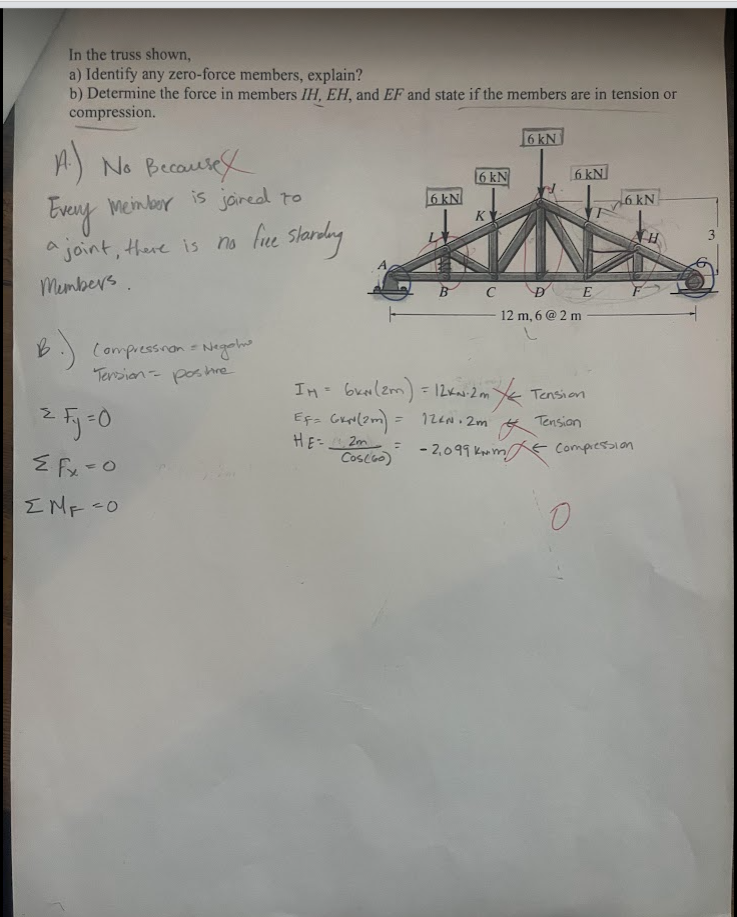 In the truss shown,
a) Identify any zero-force members, explain?
b) Determine the force in members IH, EH, and EF and state if the members are in tension or
compression.
A.) No Because
Every Member is joined to
a joint, there is no free standing
Members.
6 kN
6 kN
6 kN
6 kN
6 kN
J
K
I
L
H
3
A
G
B C D E F
12 m, 6 @ 2 m
B.) Compression = Negative
Tension = positive
Σ Fy = 0
Σ Fx = 0
Σ MF = 0
IH = 6kN(2m) = 12kN·2m ← Tension
EF = 6kN(2m) = 12kN·2m ← Tension
HE = 2m / cos(60) = -2,099 kNm ← Compression
0